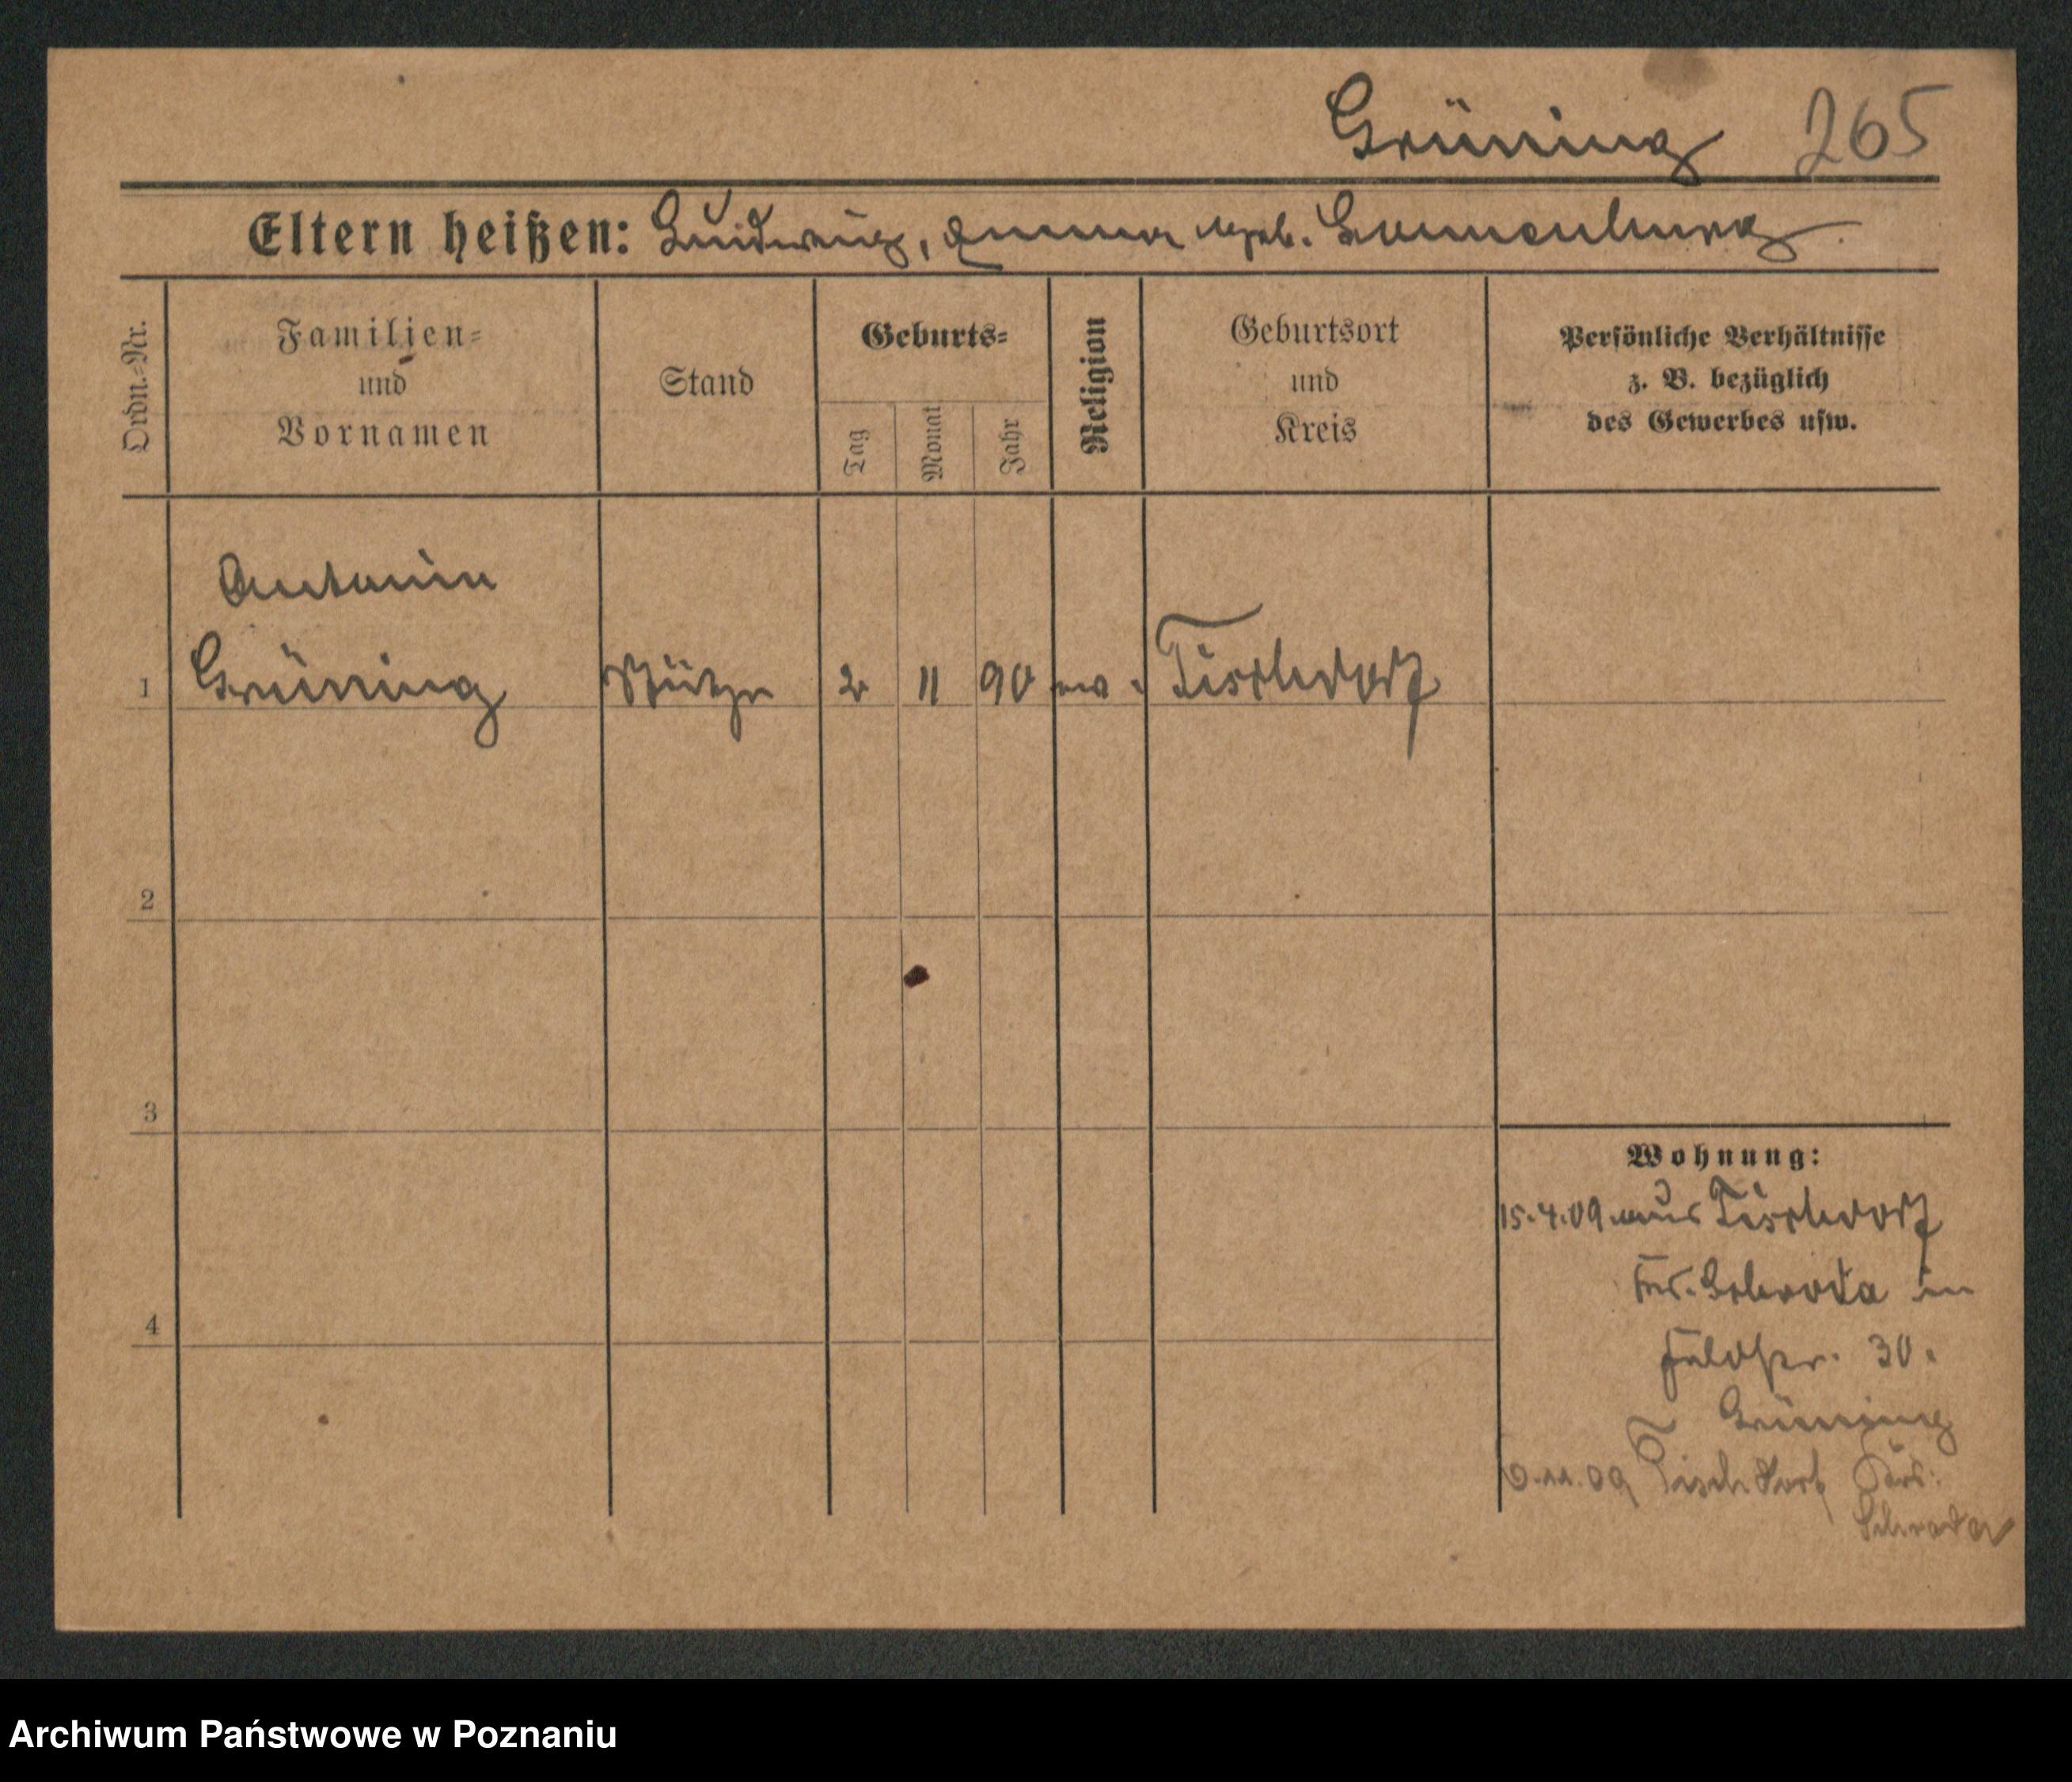 Grüning 265
Eltern heißen: Ludwig, Emma geb.
Ordn.-Nr.
Familien- und Vornamen
Stand
Geburts-
Tag
Monat
Jahr
Religion
Geburtsort und Kreis
Persönliche Verhältnisse
z. B. bezüglich
des Gewerbes usw.
1 Grüning Stütze 2 11 90 ev. Tischdorf
2
3
4
Wohnung:
15.4.09 aus Tischdorf
Krs. Schroda in
Feldstr. 30.
Grüning
.11.09 Tischdorf Krs.
Schroda
Archiwum Państwowe w Poznaniu